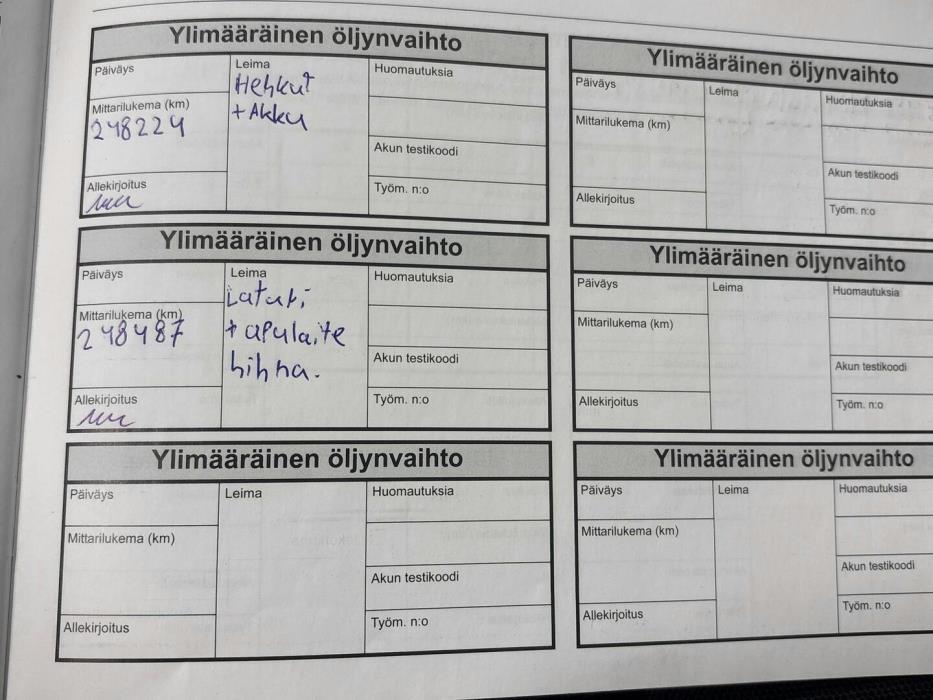 Ylimääräinen öljynvaihto
Päiväys
Leima
Hehkut
+ Akku
Huomautuksia
Mittarilukema (km)
248224
Akun testikoodi
Allekirjoitus
Työm. n:o
Ylimääräinen öljynvaihto
Päiväys
Leima
Huomautuksia
Mittarilukema (km)
Akun testikoodi
Allekirjoitus
Työm. n:o
Ylimääräinen öljynvaihto
Päiväys
Leima
Laturi
+ apulaite
hihna.
Huomautuksia
Mittarilukema (km)
248487
Akun testikoodi
Allekirjoitus
Työm. n:o
Ylimääräinen öljynvaihto
Päiväys
Leima
Huomautuksia
Mittarilukema (km)
Akun testikoodi
Allekirjoitus
Työm. n:o
Ylimääräinen öljynvaihto
Päiväys
Leima
Huomautuksia
Mittarilukema (km)
Akun testikoodi
Allekirjoitus
Työm. n:o
Ylimääräinen öljynvaihto
Päiväys
Leima
Huomautuksia
Mittarilukema (km)
Akun testikoodi
Allekirjoitus
Työm. n:o